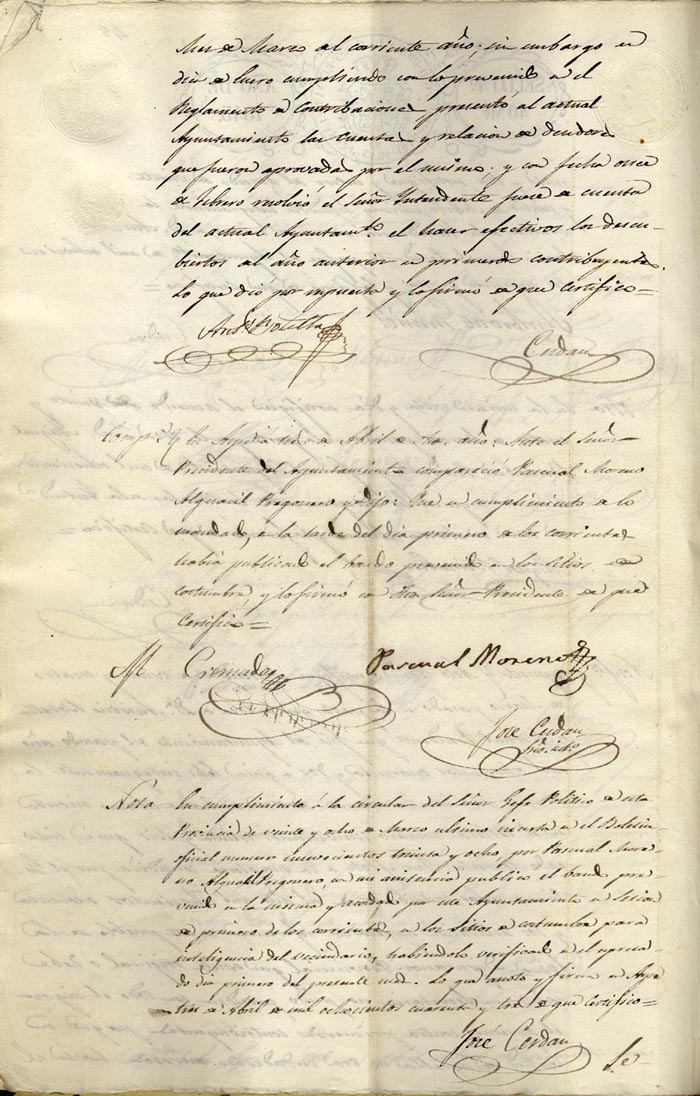 Mes de Marzo del corriente año; sin embargo en
dia de Enero cumpliendo con lo prevenido en el
Reglamento de contribuciones presentó al actual
Ayuntamiento las cuentas y relacion de deudores
que fueron aprovadas por el mismo; y con fecha once
de Febrero resolvió el Señor Yntendente fuese de cuenta
del actual Ayuntam.to el hacer efectivos los descu-
biertos del año anterior en primeros contribuyentes.
Lo que dió por respuesta y lo firmó de que Certifico=
Botella
Cerdan
Comp.a En Aspe á tres de Abril de dho. año: Ante el Señor
Presidente del Ayuntamiento compareció Pascual Moreno
Alguacil Pregonero y dijo: Que en cumplimiento de lo
mandado, en la tarde del dia primero de los corrientes
habia publicado el bando prevenido en los sitios de
costumbre, y lo firmó con dho Señor Presidente de que
Certifico=
Cremades
Pascual Moreno
Jose Cerdan
Srio. int.o
Nota En cumplimiento á la circular del Señor Gefe Politico de esta
Provincia de veinte y ocho de Marzo ultimo incerta en el Boletin
oficial numero novecientos treinta y ocho, por Pascual More-
no Alguacil Pregonero, con mi asistencia publico el bando pre-
venido en la misma y acordado por este Ayuntamiento en Sesion
de primero de los corrientes, en los Sitios de costumbre para
inteligencia del vecindario, habiendolo verificado en el espresa-
do dia primero del presente mes. Lo que anoto y firmo en Aspe
tres de Abril de mil ochocientos cuarenta y tres de que Certifico=
Jose Cerdan
Se